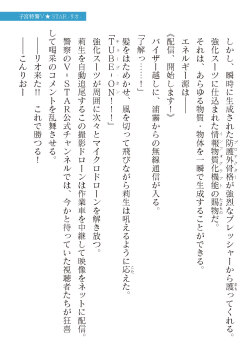 子宮特警V★STAR・リオ
しかし、瞬時に生成された防護外骨格が強烈なプレッシャーから護ってくれる。
強化スーツに仕込まれた情報物質化機能の賜物だ。
それは、あらゆる物質・物体を一瞬で生成することができる。
エネルギー源は――
《配信、開始します!》
バイザー越しに、浦霧からの無線通信が入る。
「了解っ……!」
髪をはためかせ、風を切って飛びながら莉生は吠えるように応えた。
「TUBE・ON!!!」
強化スーツが周囲に次々とマイクロドローンを解き放つ。
莉生を自動追尾するこの撮影ドローンは作業車を中継して映像をネットに配信。
警察のV・STAR公式チャンネルでは、今かと待っていた視聴者たちが狂喜
して喝采のコメントを乱舞させる
――リオ来た!! これで勝つる!
――こんりおー